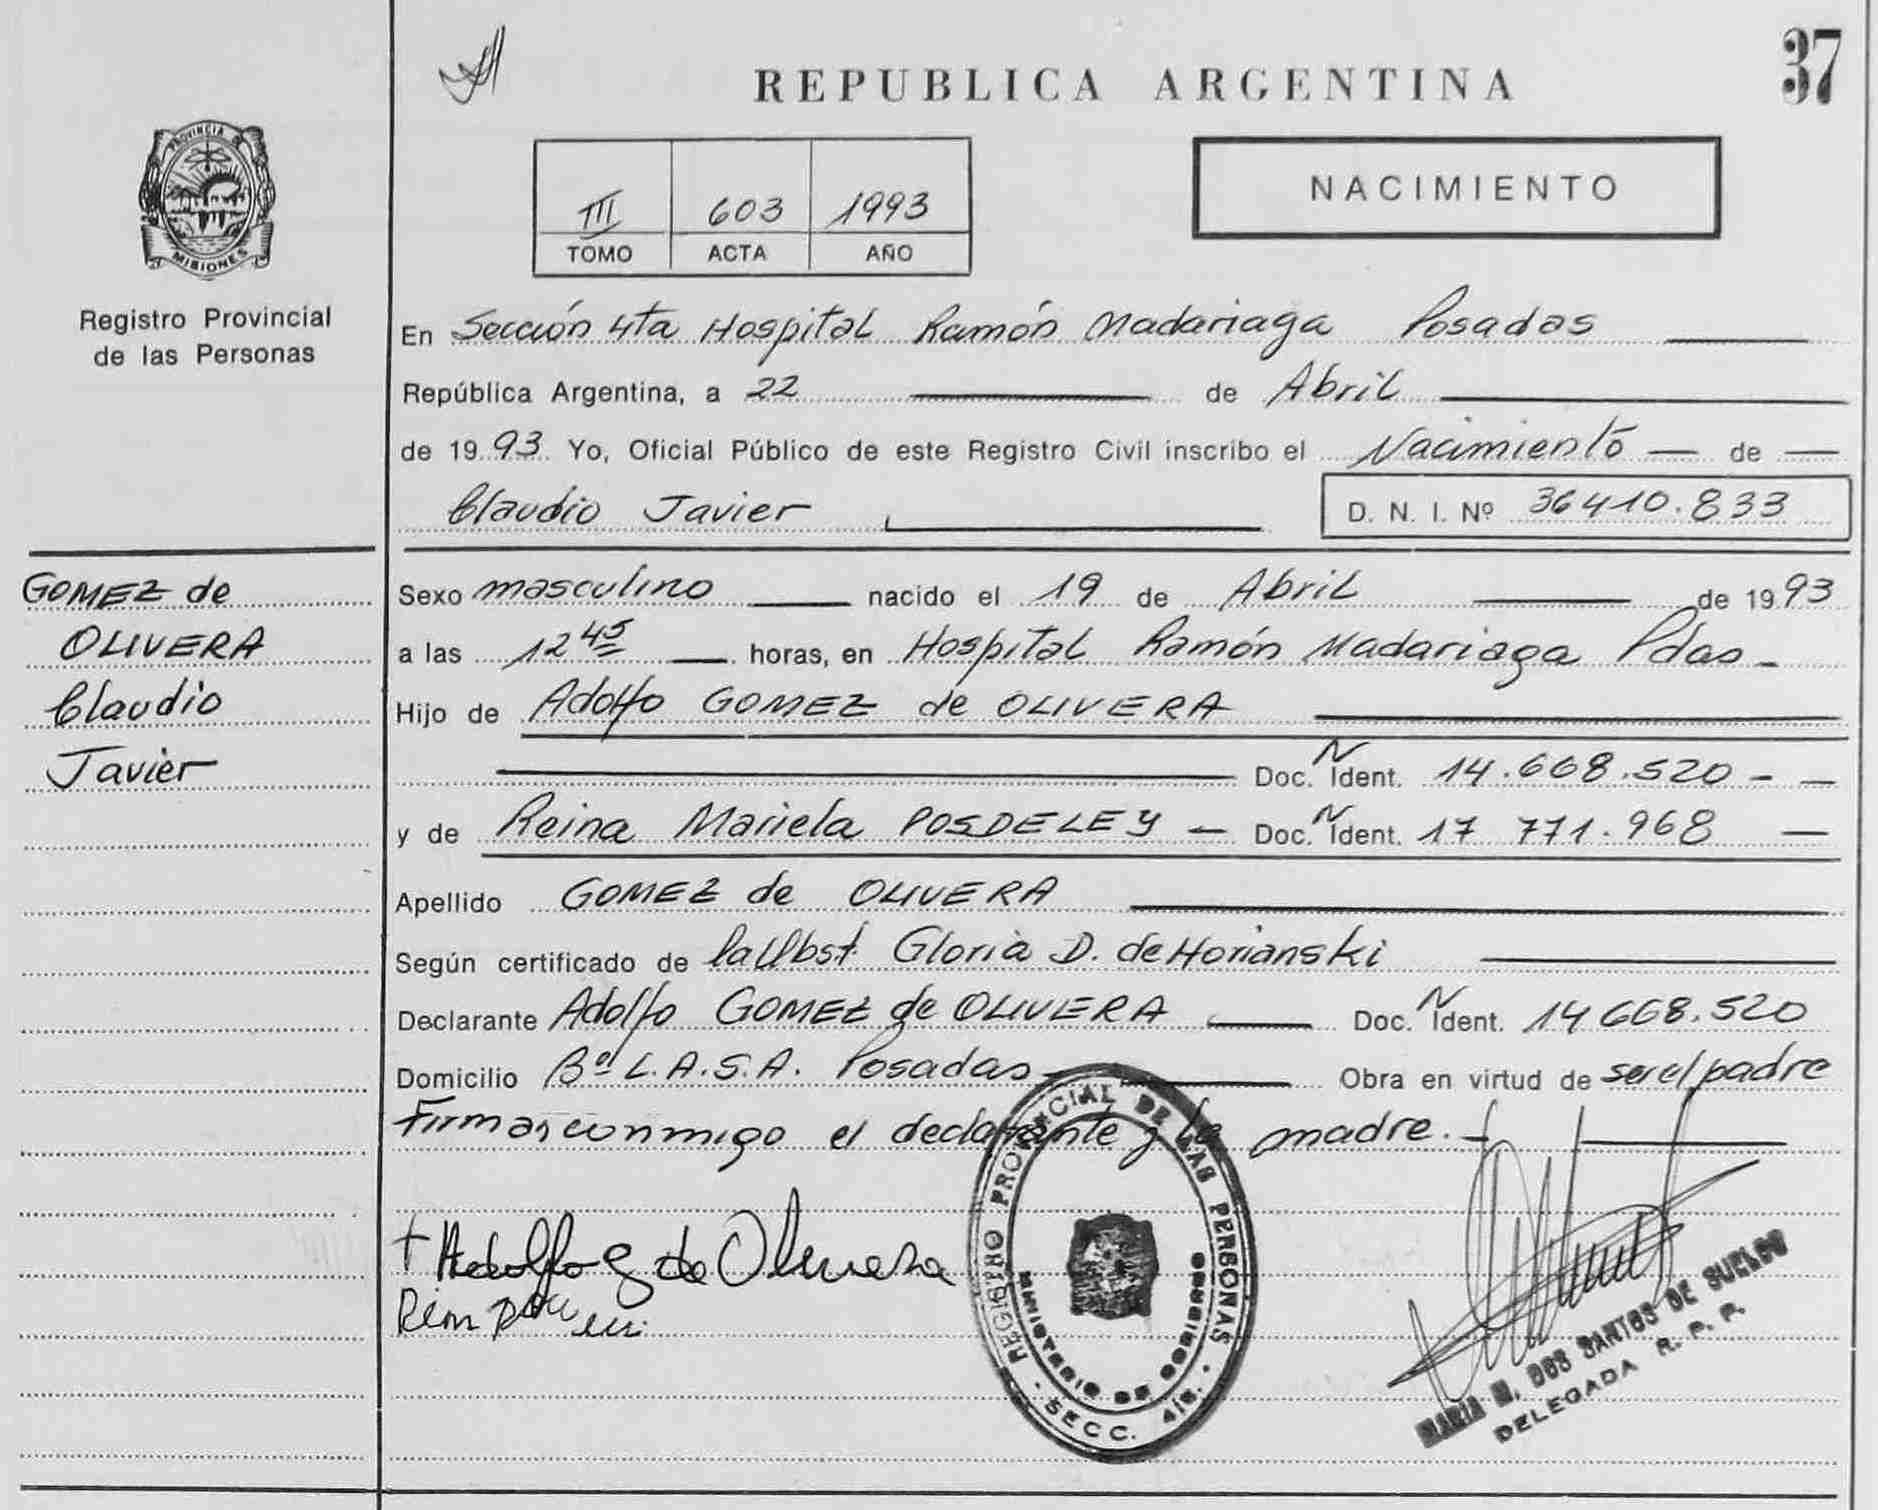 37
REPUBLICA ARGENTINA
PROVINCIA DE
MISIONES
Registro Provincial
de las Personas
NACIMIENTO
III 603 1993
TOMO ACTA AÑO
En Sección 4ta Hospital Ramón Madariaga Posadas
República Argentina, a 22 de Abril
de 1993 Yo, Oficial Público de este Registro Civil inscribo el Nacimiento de
Claudio Javier D. N. I. Nº 36410.833
GOMEZ de
OLIVERA
Claudio
Javier
Sexo masculino nacido el 19 de Abril de 1993
a las 12 45 horas, en Hospital Ramón Madariaga Pdas
Hijo de Adolfo GOMEZ de OLIVERA
Doc. N Ident. 14.668.520
y de Reina Mariela POSDELEY Doc. N Ident. 17 771.968
Apellido GOMEZ de OLIVERA
Según certificado de la Obst. Gloria D. de Horianski
Declarante Adolfo GOMEZ de OLIVERA Doc. N Ident. 14 668.520
Domicilio Bº L.A.S.A. Posadas Obra en virtud de ser el padre
Firman conmigo el declarante y la madre.
Adolfo G de Olivera
REGISTRO PROVINCIAL DE LAS PERSONAS
MINISTERIO DE GOBIERNO
SECC. 4ta.
MARIA M. DOS SANTOS DE SUELDO
DELEGADA R. P. P.